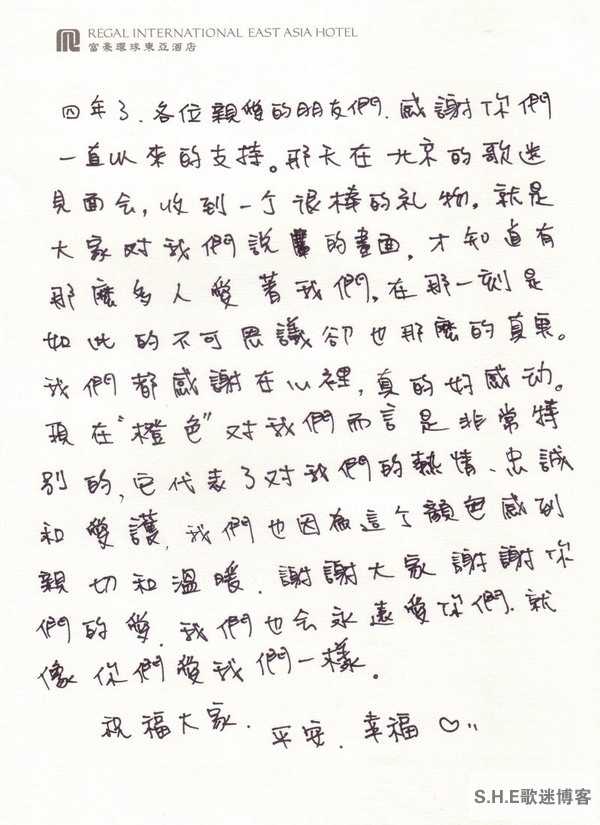 REGAL INTERNATIONAL EAST ASIA HOTEL
富豪環球東亞酒店
四年了、各位親愛的朋友們、感謝你們
一直以來的支持。那天在北京的歌迷
見面会,收到一个很棒的礼物。就是
大家对我們說的畫面,才知道有
那麼多人愛著我們。在那一刻是
如此的不可思議卻也那麼的真实。
我們都感謝在心裡,真的好感动。
現在"橙色"对我們而言是非常特
別的,它代表了对我們的熱情、忠誠
和愛護,我們也因為這个顏色感到
親切和溫暖.謝謝大家 謝謝你
們的愛.我們也会永遠愛你們.就
像你們愛我們一樣。
祝福大家.平安.幸福♡
S.H.E歌迷博客